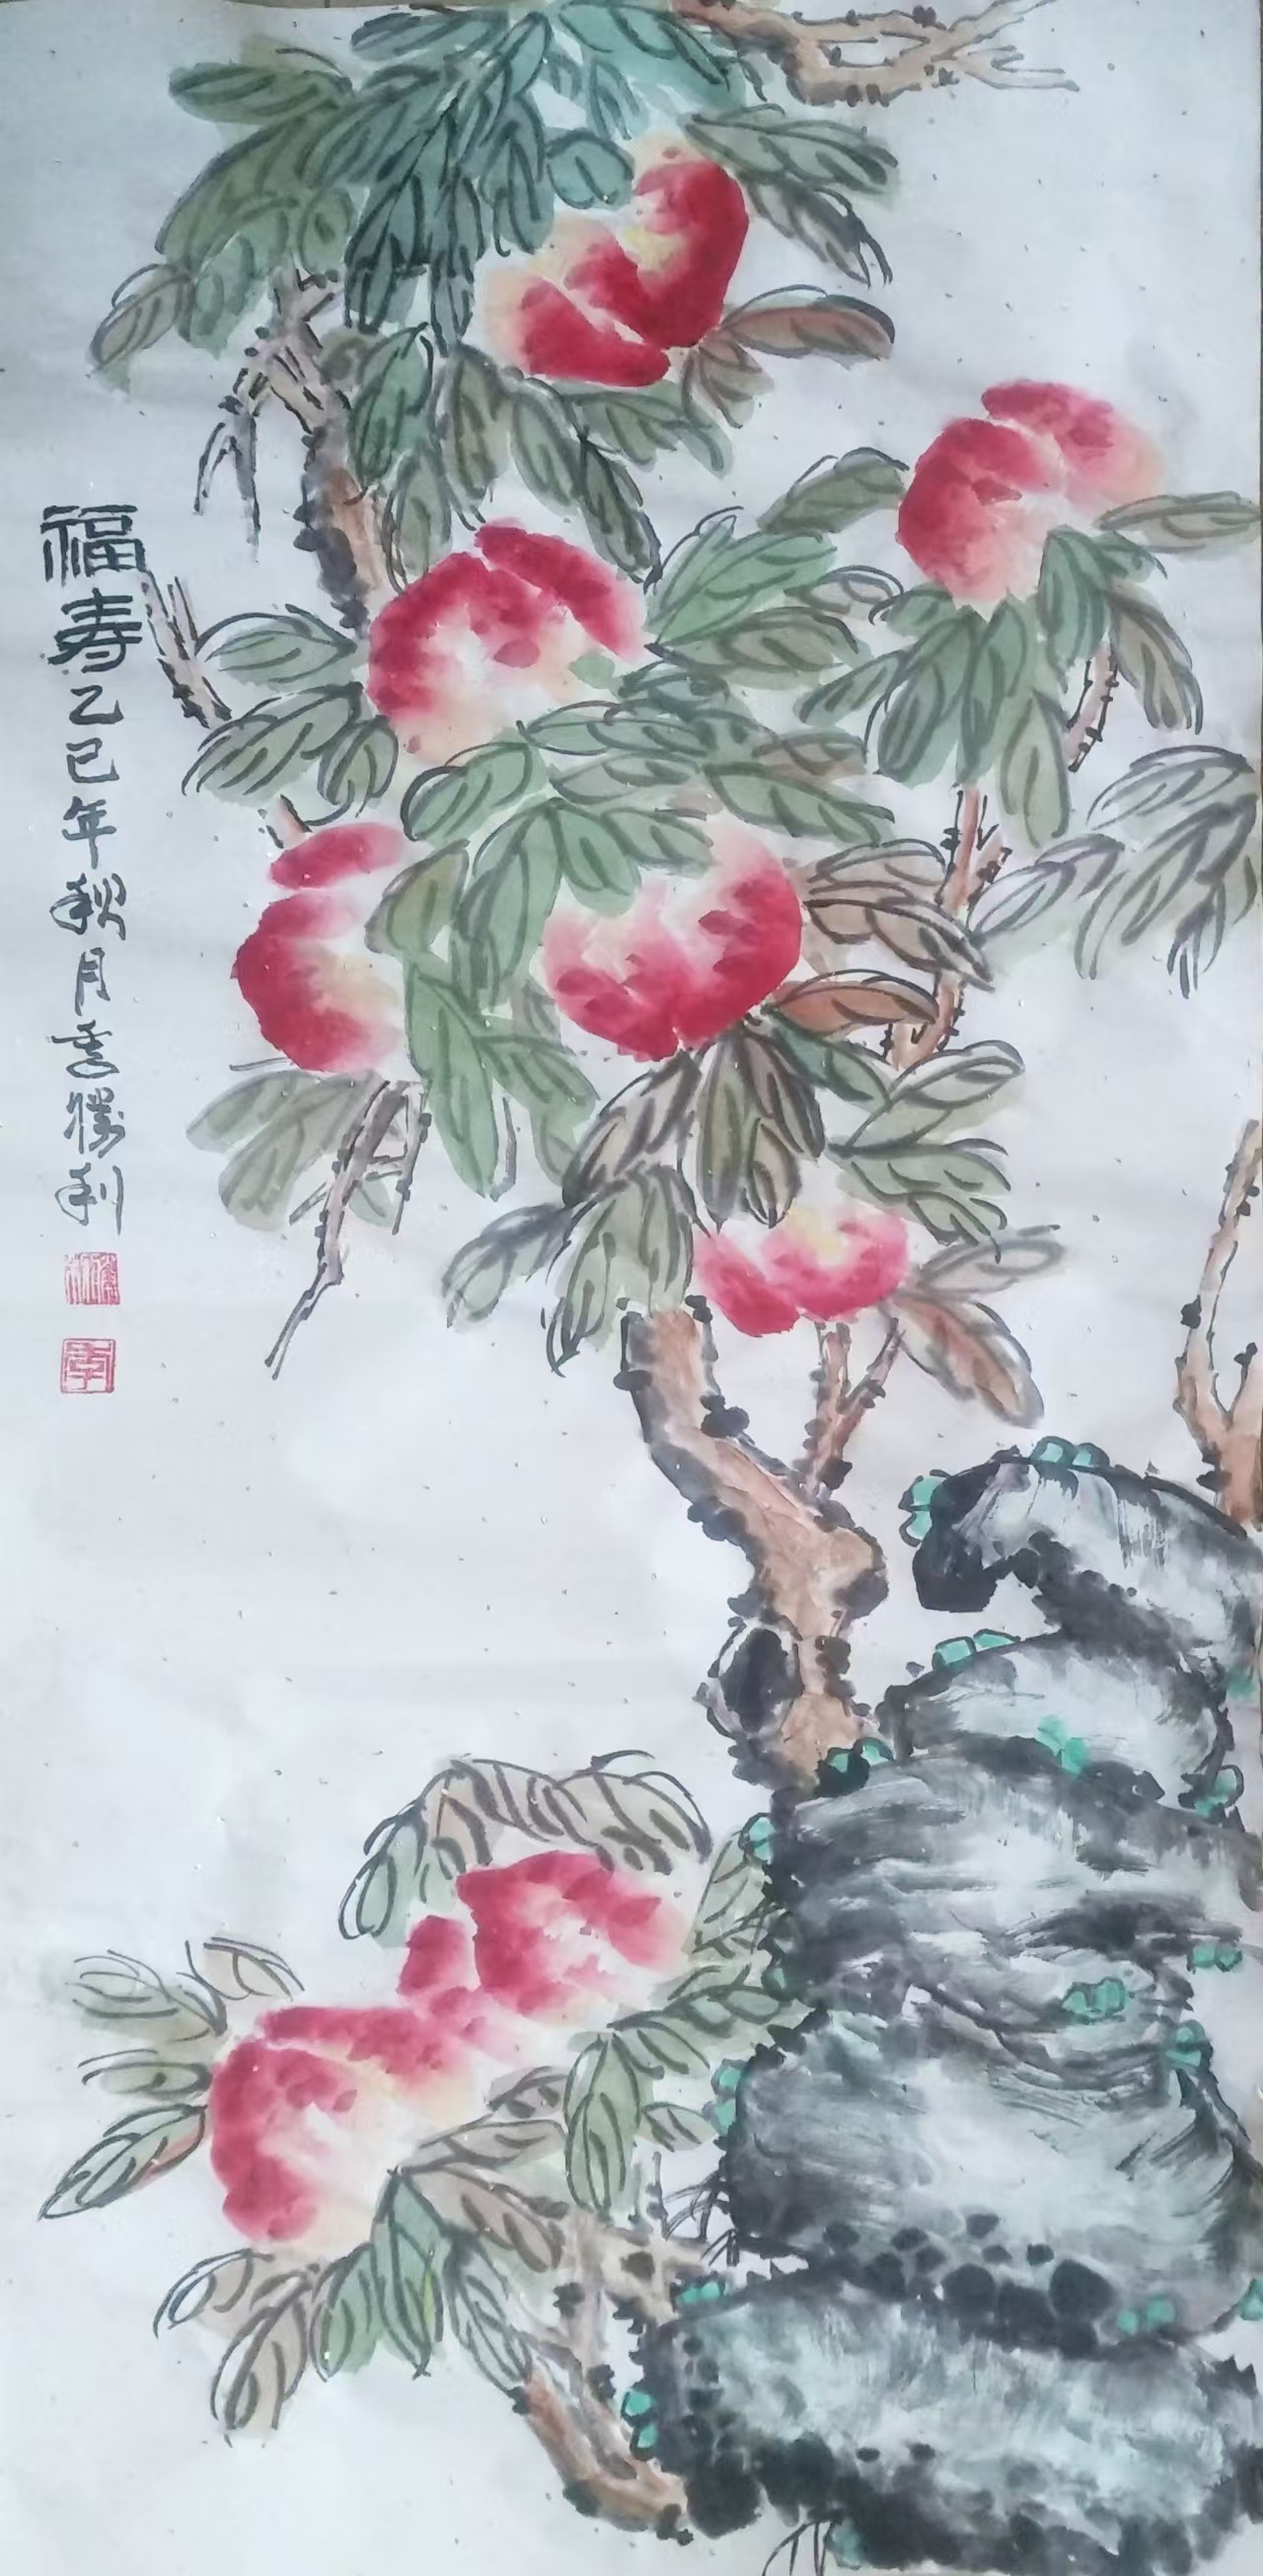 福寿乙巳年秋月李勝利
李